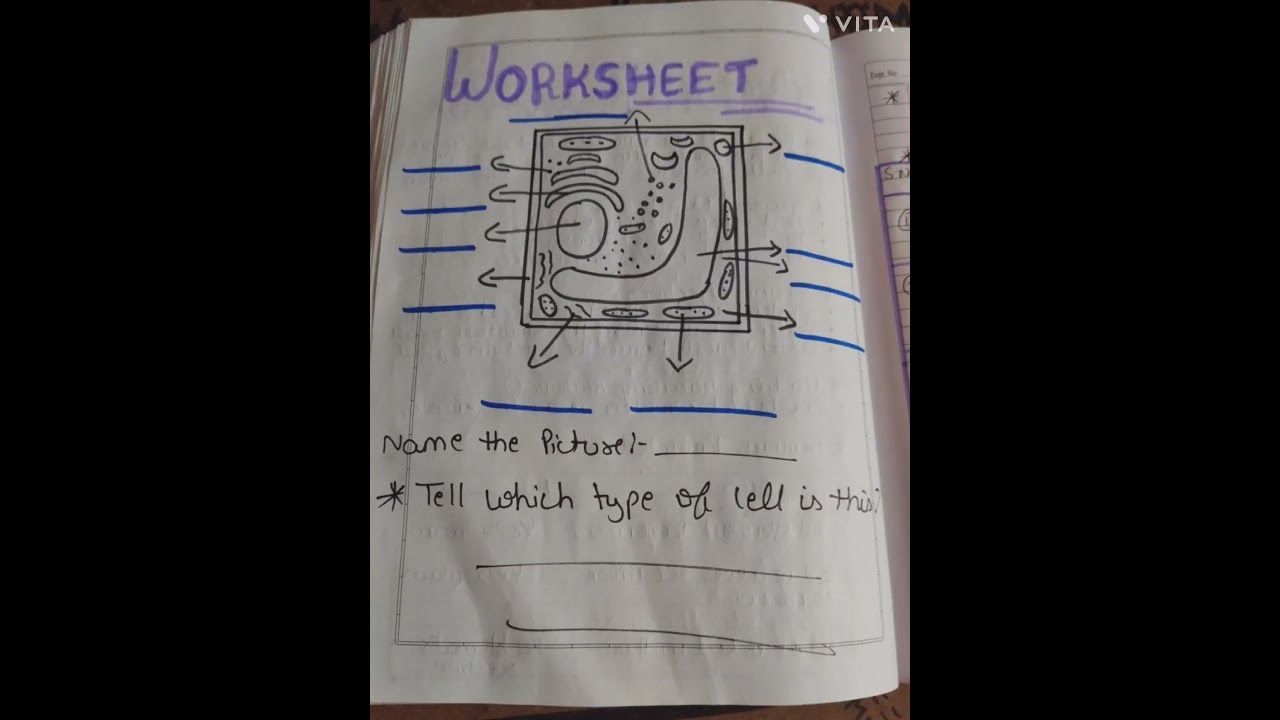 VITA
WORKSHEET
Expt. No.
Name the Picture:-
* Tell which type of cell is this?